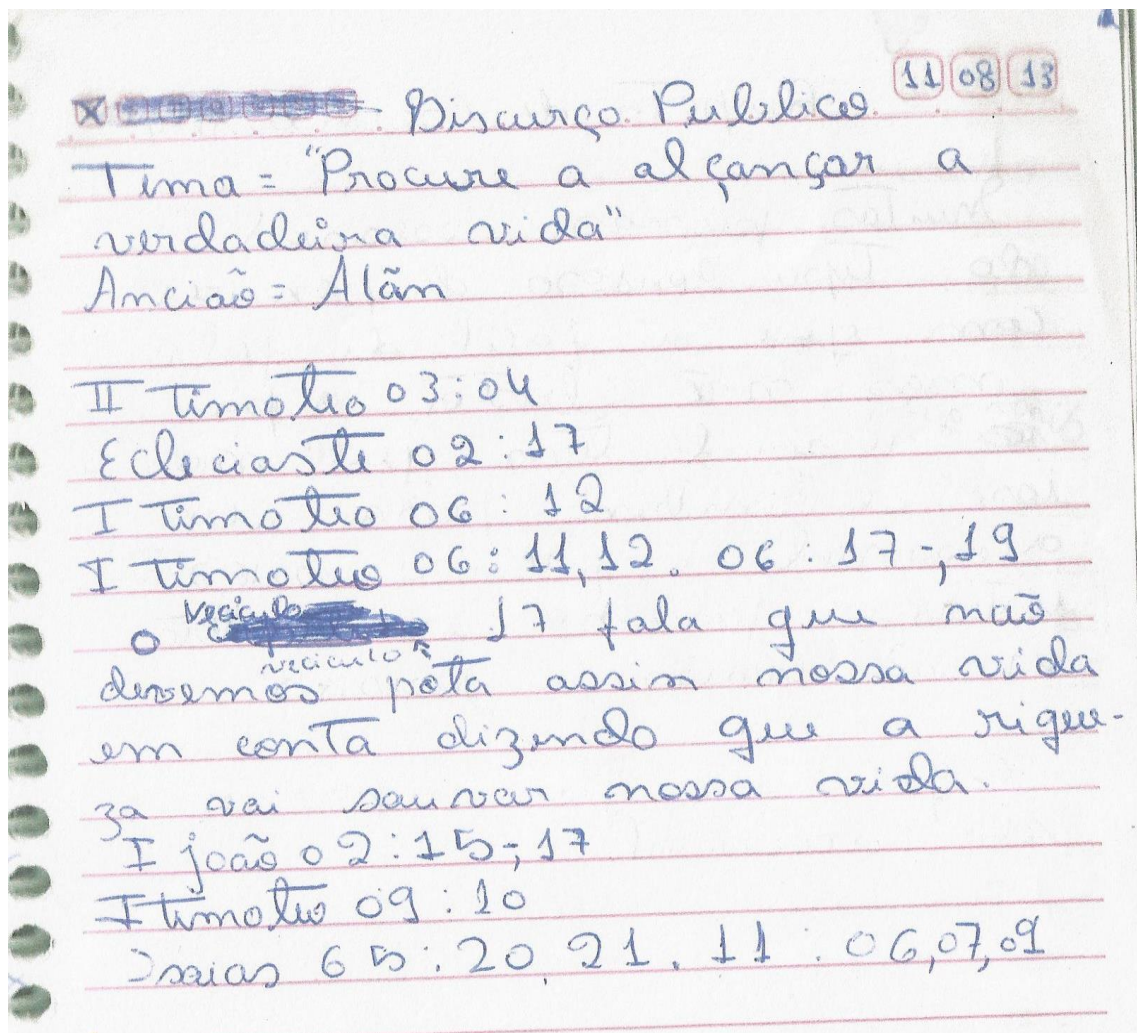 11 08 13
Discurço Publico
Tema = "Procure a alçançar a
verdadeira vida"
Ancião = Alãn
II Timoteo 03:04
Ecleciaste 02:17
I Timoteo 06:12
I Timoteo 06:11,12. 06:17-,19
veciculo
O 17 fala que não
veciculo
devemos pôta assim nossa vida
em conta dizendo que a rique-
za vai sauvar nossa vida.
I joão 02:15-,17
I timoteo 09:10
Isaias 65:20,21. 11:06,07,09